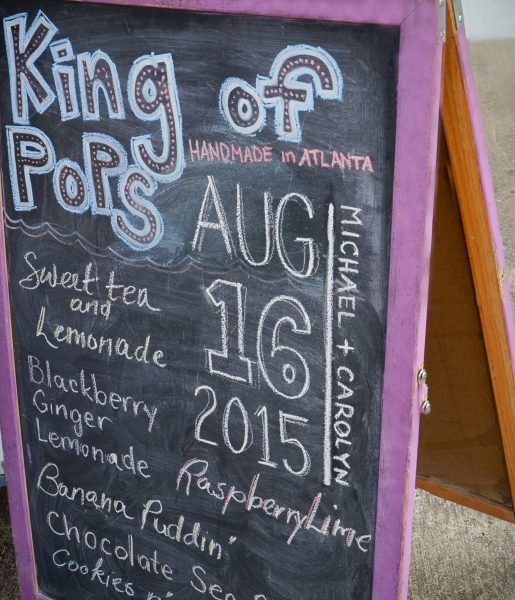 King of
PoPS
HANDMADE in ATLANTA
AUG
16
2015
MICHAEL + CAROLYN
Sweet tea
and
Lemonade
Blackberry
Ginger
Lemonade
Raspberry Lime
Banana Puddin'
Chocolate Sea
Cookies n'